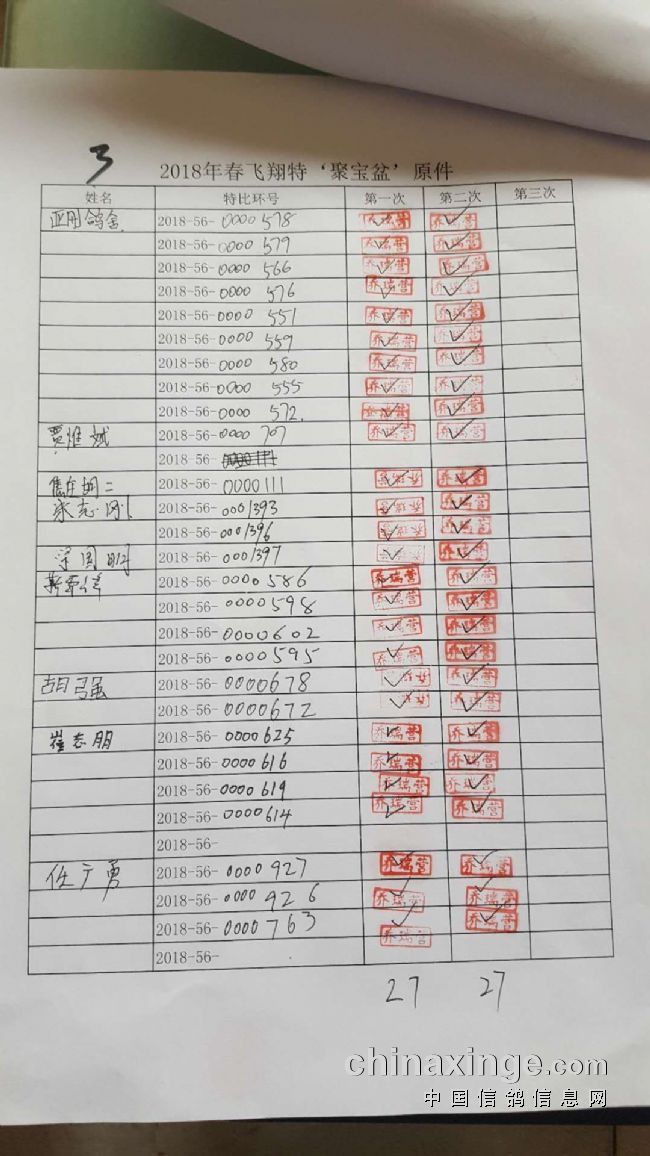 3
2018年春飞翔特‘聚宝盆’原件
姓名 特比环号 第一次 第二次 第三次
亚刚鸽舍 2018-56-0000578 乔瑞营
2018-56-0000579 乔瑞营 乔瑞营
2018-56-0000566 乔瑞营 乔瑞营
2018-56-0000576 乔瑞营 乔瑞营
2018-56-0000551 乔瑞营 乔瑞营
2018-56-0000559 乔瑞营 乔瑞营
2018-56-0000580 乔瑞营 乔瑞营
2018-56-0000555 乔瑞营 乔瑞营
2018-56-0000572. 乔瑞营 乔瑞营
贾维斌 2018-56-0000707 乔瑞营 乔瑞营
2018-56-
2018-56-0000111 乔瑞营
2018-56-0001393 乔瑞营
2018-56-0001396 乔瑞营
2018-56-0001397 乔瑞营
2018-56-0000586 乔瑞营 乔瑞营
2018-56-0000598 乔瑞营 乔瑞营
2018-56-0000602 乔瑞营 乔瑞营
2018-56-0000595 乔瑞营 乔瑞营
胡强 2018-56-0000678 乔瑞营
2018-56-0000672 乔瑞营
崔志朋 2018-56-0000625 乔瑞营 乔瑞营
2018-56-0000616 乔瑞营 乔瑞营
2018-56-0000619 乔瑞营 乔瑞营
2018-56-0000614 乔瑞营 乔瑞营
2018-56-
任广勇 2018-56-0000927 乔瑞营 乔瑞营
2018-56-0000926 乔瑞营 乔瑞营
2018-56-0000763 乔瑞营 乔瑞营
2018-56-
27 27
chinaxinge.com
中国信鸽信息网